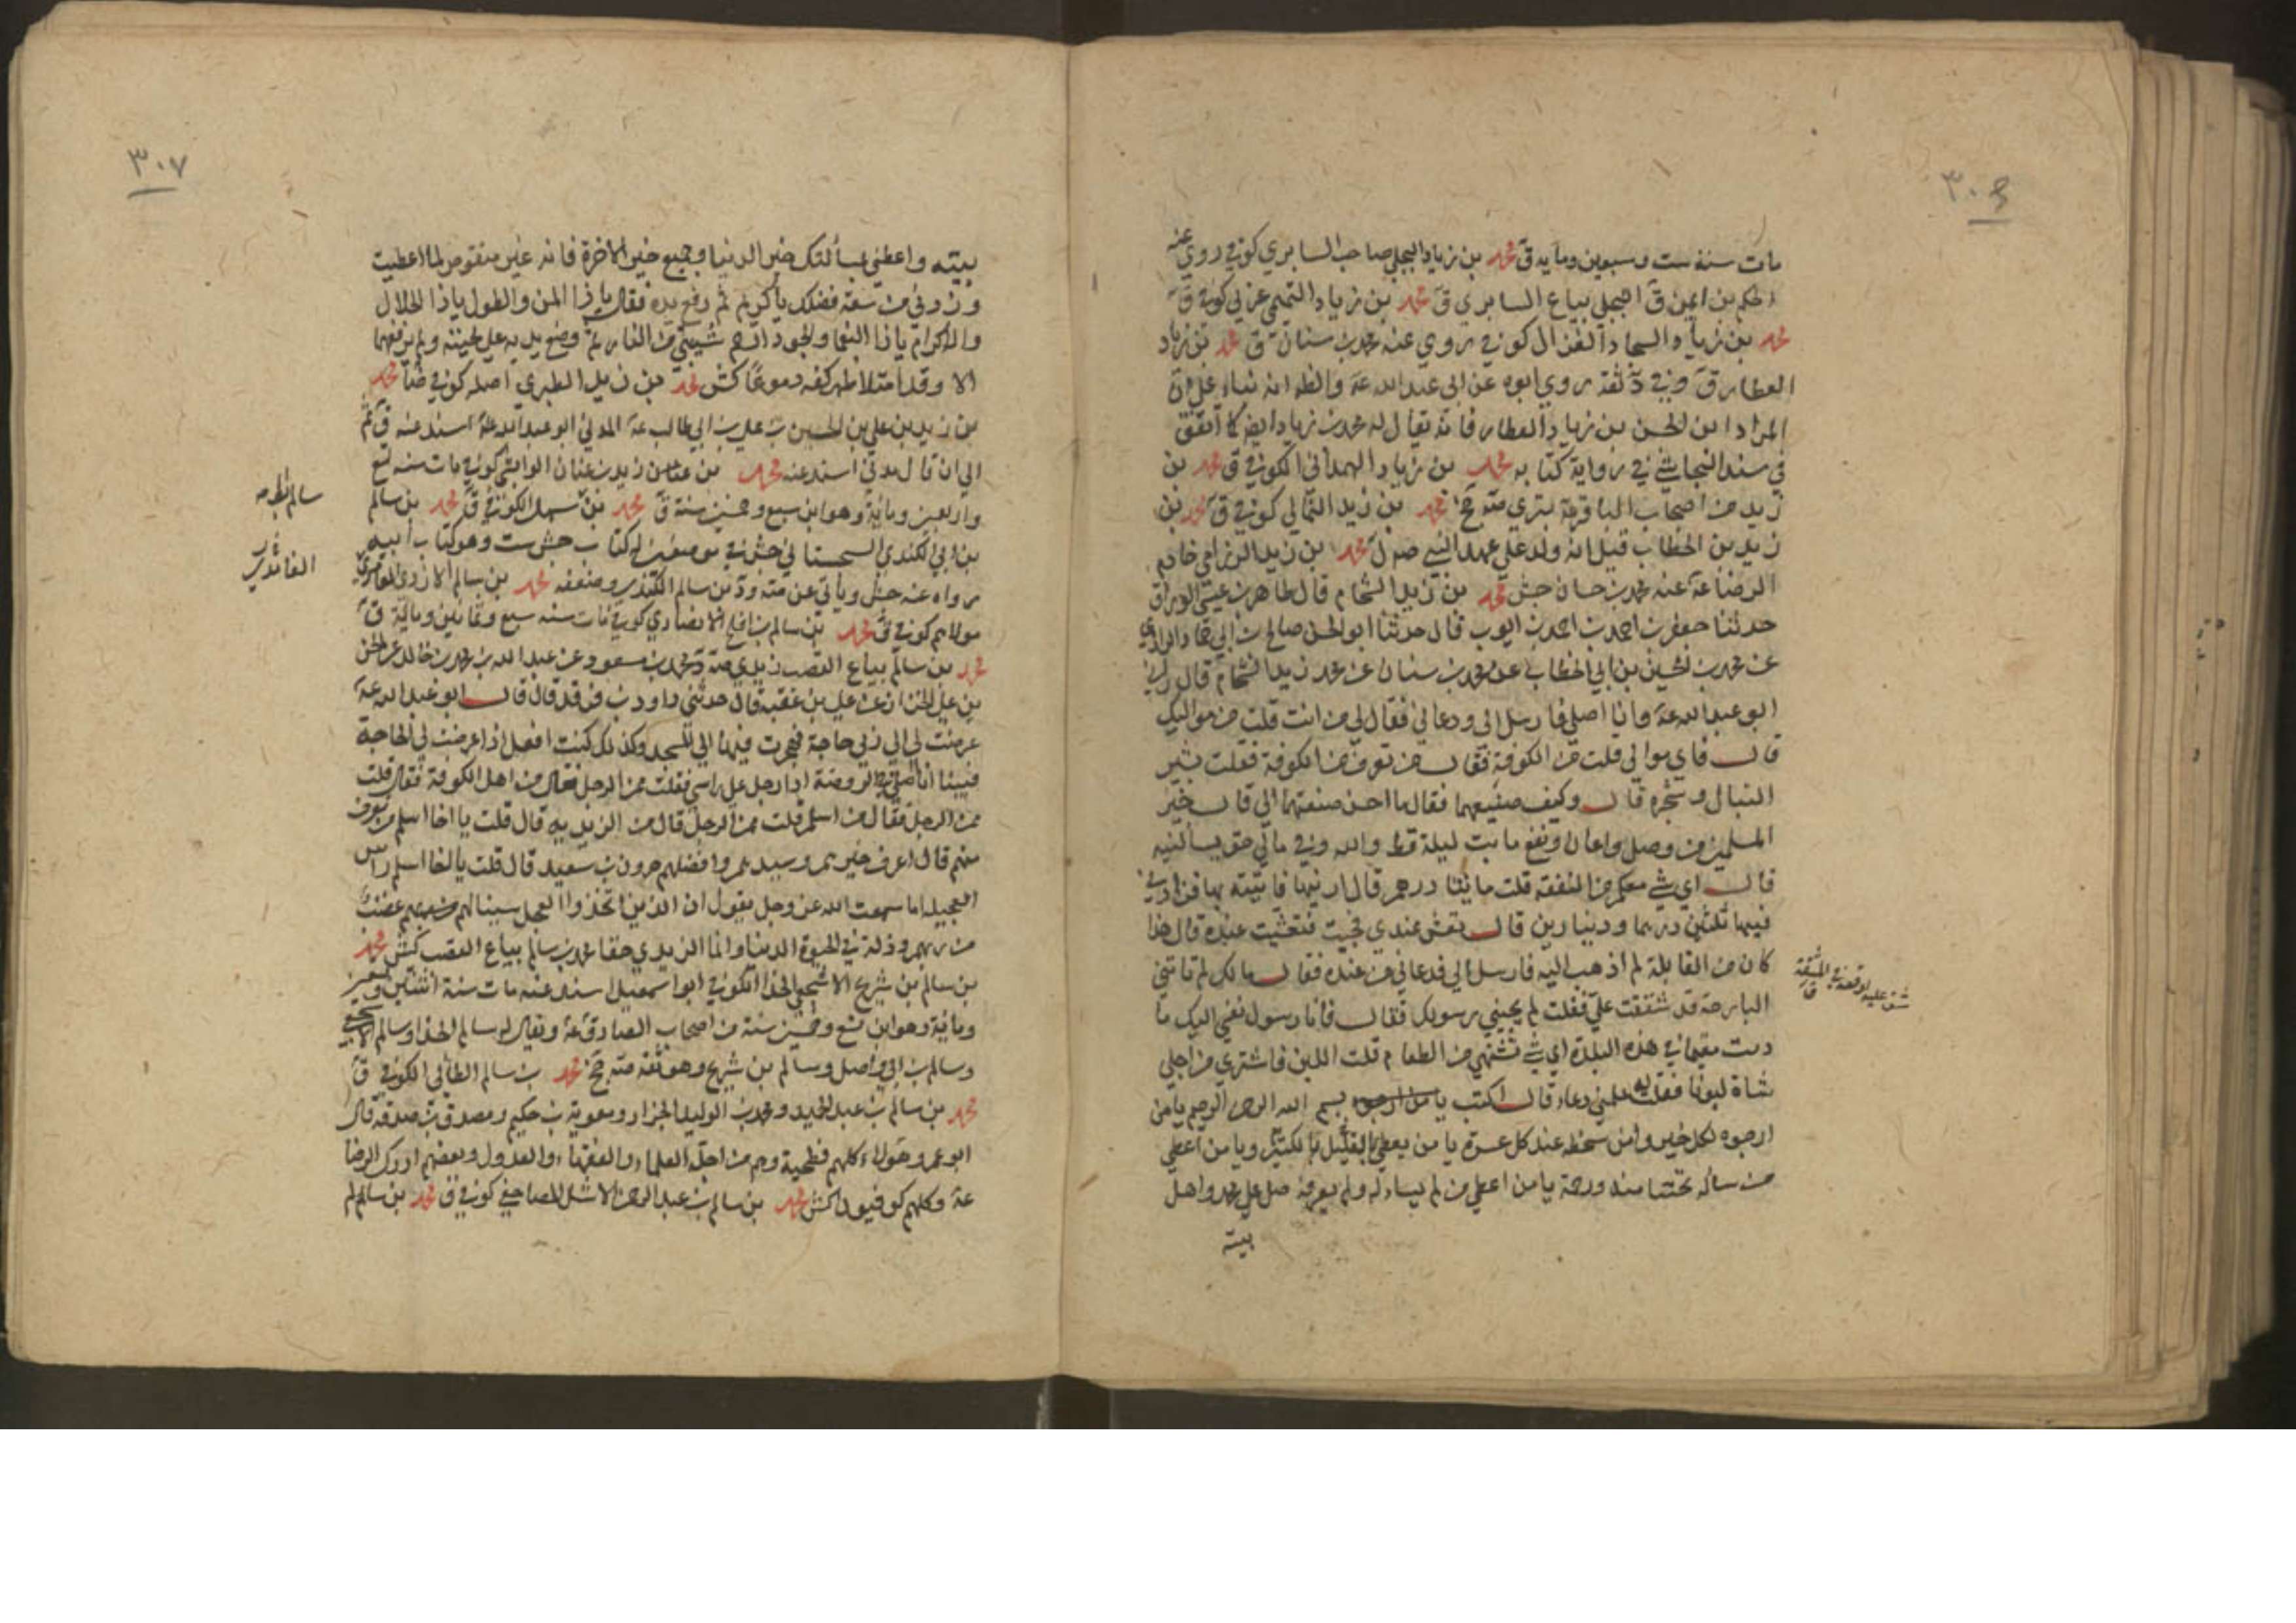 ٣٠٦
مات سنة ست وسبعين ومايه ق محمد بن زياد البجلي صاحب السابري كوفي روي عنه
الحكم بن ايمن ق البجلي بياع السابري ق محمد بن زياد التميمي كوفي ق
محمد بن زياد السجاد الغزال كوفي روي عنه محمد بن سنان ق محمد بن زياد
العطار ق وفي ثقة روي ابوه عن ابي عبد الله عه والظ انه بناء علي ان
المراد ابن الحسن بن زياد العطار فانه يقال له محمد بن زياد ايضا كما اتفق
في سند النجاشي في رواية كتابه محمد بن زياد الهمداني الكوفي ق محمد بن
زيد من اصحاب الباقر عه بتري محمد بن زيد الثمالي كوفي ق محمد بن
زيد بن الخطاب قيل انه ولد علي عهد النبي ص ل محمد بن زيد الرزامي خادم
الرضا عه عنه محمد بن حسان جش محمد بن زيد الشحام قال طاهر بن عيسي الوراق
حدثنا جعفر بن احمد بن ايوب قال حدثنا ابو الحسن صالح بن ابي حماد الرازي
عن محمد بن الحسين بن ابي الخطاب عن محمد بن سنان عن محمد زيد الشحام قال راني
ابو عبد الله عه وانا اصلي فارسل الي ودعاني فقال لي من انت قلت من مواليك
قال فاي موالي قلت من الكوفة فقال من تعرف من الكوفة فقلت بشير
النبال وشجره قال وكيف صنيعهما فقال ما احسن صنيعتهما الي قال خير
المسلمين من وصل واعان ونفع ما بت ليلة قط والله وفي مالي حق يسألنيه
قال اي شي معكم من النفقة قلت مائتا درهم قال ارنيها فاتيته بها فزادني
فيها ثلثين درهما ودينارين قال تعش عندي فجيت فتعشيت عنده قال فلما
كان من القابلة لم اذهب اليه فارسل الي فدعاني من عنده فقال مالك لم تاتني
البارحة قد شفقت علي فقلت لم يجيني رسولك فقال فانا رسول نفسي اليك ما
دمت مقيما في هذه البلدة اي شي تشتهي من الطعام قلت اللبن فاشتري من اجلي
شاة لبونا فقلت له علمني دعاء قال اكتب بسم الله الرحمن الرحيم يا من
ارجوه لكل خير وامن سخطه عند كل عسرة يا من يعطي بالقليل الكثير ويا من اعطي
من سأله تحننا منه ورحمة يا من اعطي من لم يسأله ولم يعرفه صل علي محمد واهل
بيته
٣٠٧
بيته واعطني بمسألتك خير الدنيا وجميع خير الاخرة فانه غير منقوص لما اعطيت
وزدني من سعة فضلك يا كريم ثم رفع يده فقال يا ذا المن والطول يا ذا الجلال
والاكرام يا ذا النعما والجود ارحم شيبتي من النار ثم وضع يديه علي لحيته ولم يرفعهما
الا وقد امتلا ظهر كفه دموعا كش محمد بن زيد الطبري اصله كوفي ضا محمد
بن زيد بن علي بن الحسين بن علي بن ابي طالب عه المدني ابو عبد الله اسند عنه ق ثم
الي ان قال مدني اسند عنه محمد بن زيد بن عثمان الوابشي كوفي مات سنه تسع
واربعين ومائة وهو ابن سبع وخمسين سنة ق محمد بن سهل الكوفي ق محمد بن سالم
بن ابي الكندي السجستاني جش له كتاب جش ست وهو كتاب ابيه
رواه عنه جش وياتي عن بن سالم الكندي وضعفه محمد بن سالم الازدي الغامدي
مولاهم كوفي ق محمد بن سالم بن افلح الانصاري كوفي مات سنه سبع وثمانين ومائة ق
محمد بن سالم بياع القصب زيدي محمد بن مسعود عن عبد الله بن محمد بن خالد عن الحسن
بن علي الخزاز عن علي بن عقبه قال حدثني داود بن فرقد قال قال ابو عبد الله عه
عرضت لي الي ربي حاجة فهجرت فيها الي المسجد وكذلك كنت افعل اذا عرضت لي الحاجة
فبينا انا اصلي في الروضة اذا رجل علي راسي فقلت ممن الرجل فقال من اهل الكوفة فقال قلت
ممن الرجل فقال من اسلم قلت ممن الرجل قال من الزيديه قال قلت يا اخا اسلم من تعرف
منهم قال اعرف خيرهم وسيدهم وافضلهم هرون بن سعيد قال قلت يا اخا اسلم راس
العجيلة اما سمعت الله عز وجل يقول ان الذين اتخذوا العجل سينالهم غضب
من ربهم وذلة في الحيوة الدنيا وانما الزيدي حقا محمد بن سالم بياع القصب كش محمد
بن سالم بن شريح الاشجعي الحذا الكوفي ابو اسمعيل اسند عنه مات سنة اثنتين وتسعين
ومائة وهو ابن تسع وخمسين سنة من اصحاب الصادق عه ويقال له سالم الحذا وسالم الاشجعي
وسالم بن ابي واصل وسالم بن شريح وهو ثقة محمد بن سالم الطائي الكوفي ق
محمد بن سالم بن عبد الحميد ومحمد بن الوليد الخزاز ومعوية بن حكيم ومصدق بن صدقة قال
ابو عمرو هولاء كلهم فطحية وهم من اجلة العلماء والفقهاء والعدول وبعضهم ادرك الرضا
عه وكلهم كوفيون كش محمد بن سالم بن عبد الرحمن الاشل المصاحفي كوفي ق محمد بن سالم